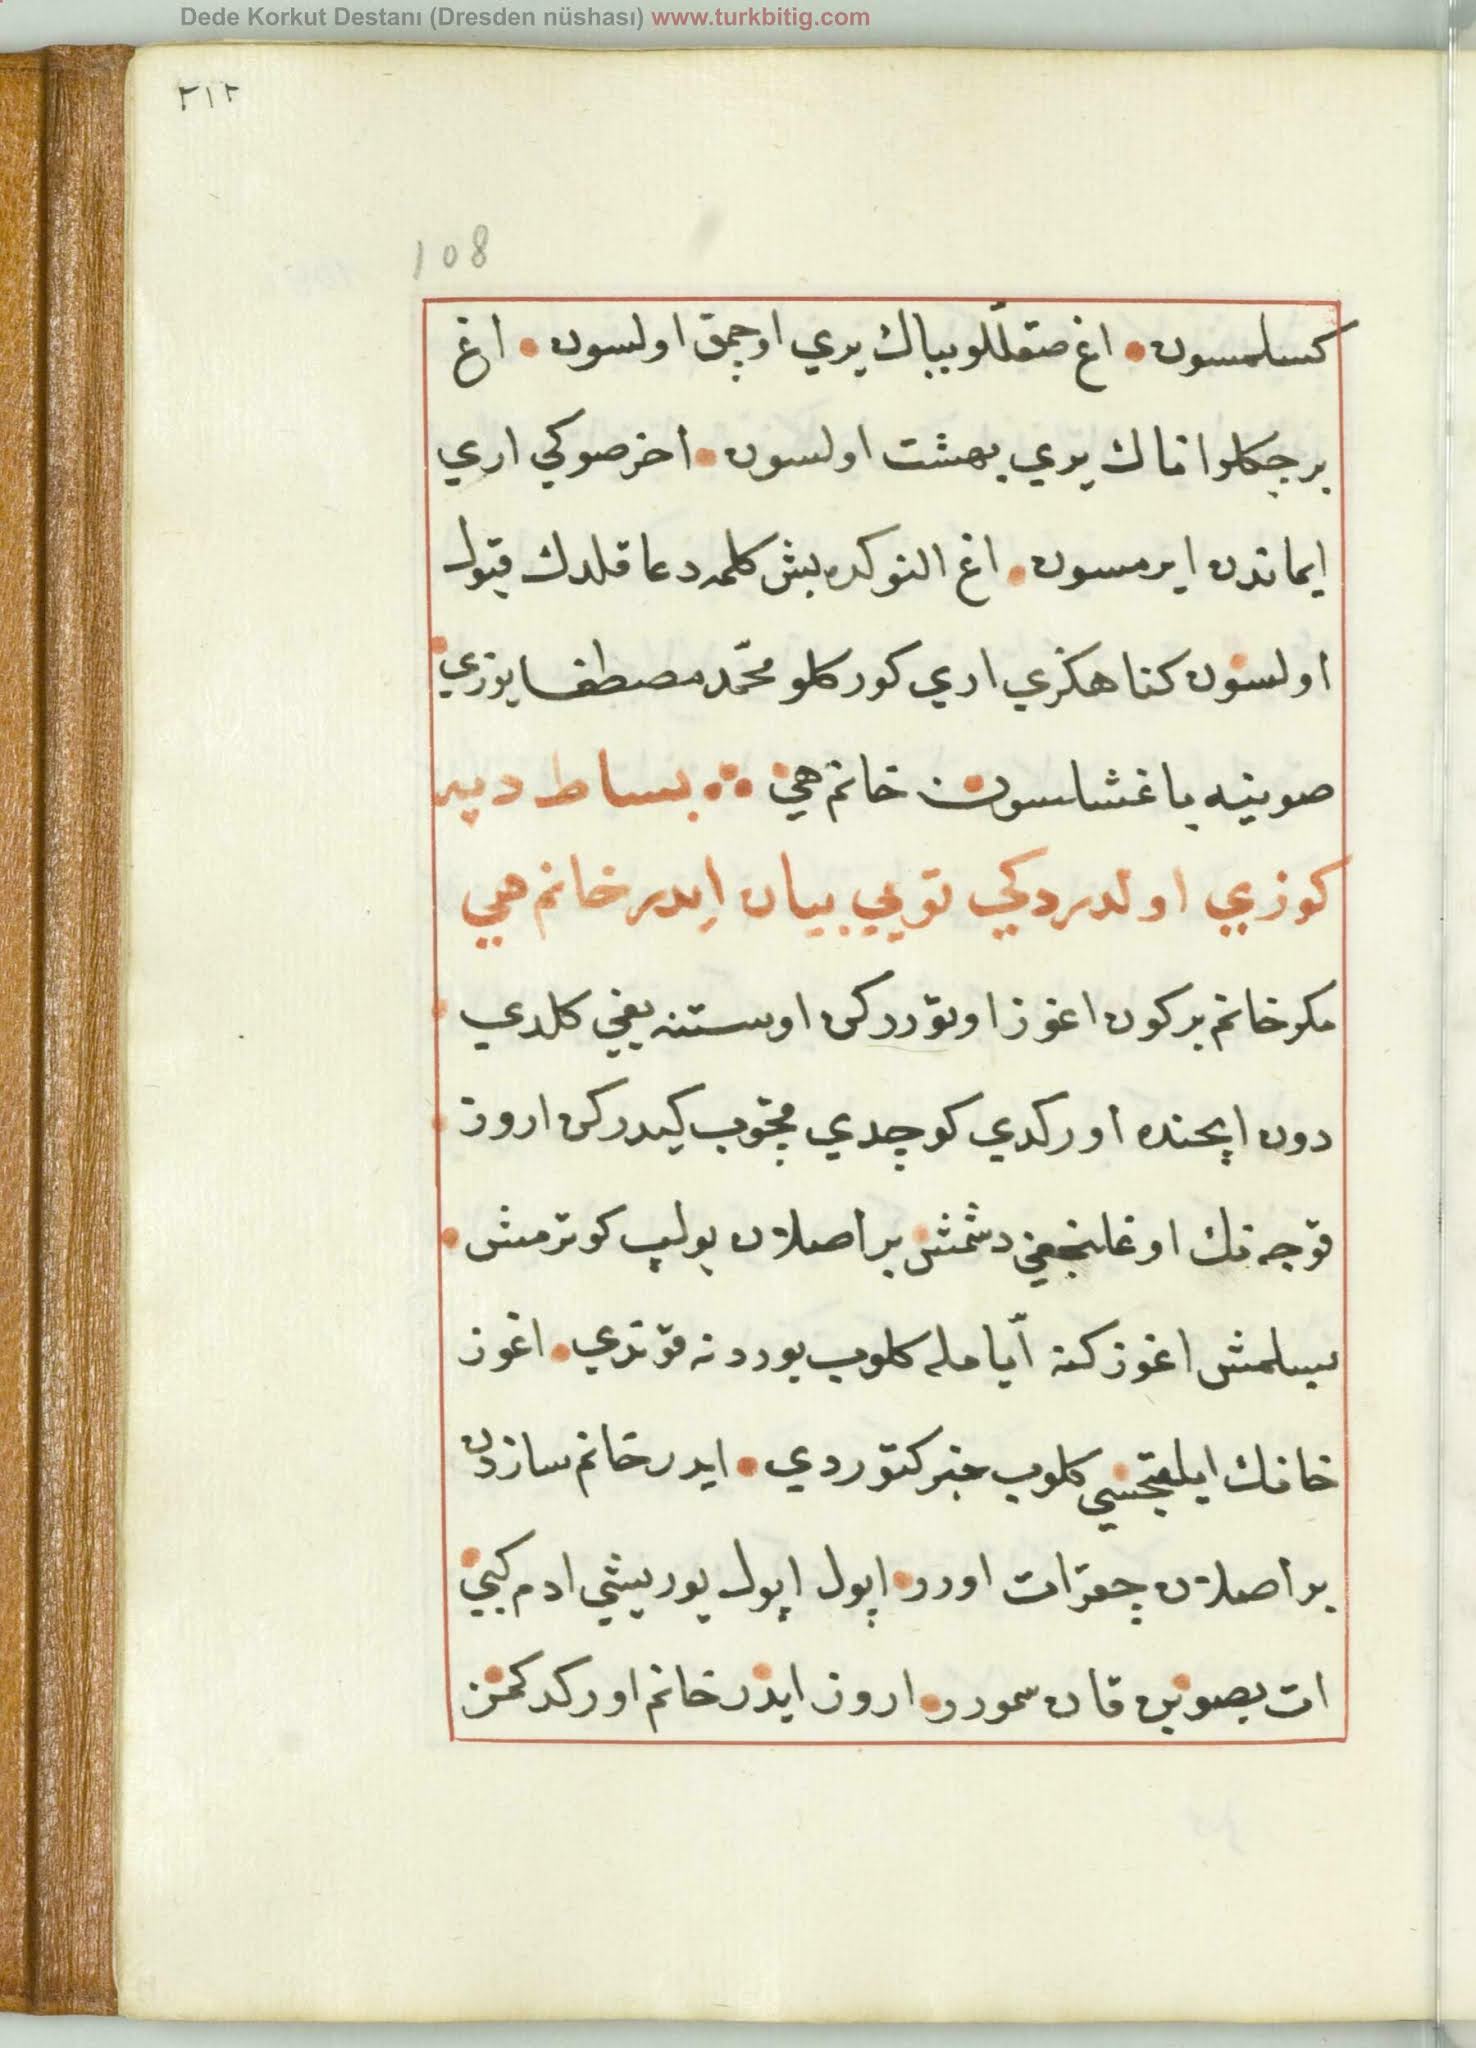 Dede Korkut Destanı (Dresden nüshası) www.turkbitig.com
٢١٢
108
كسلمسون اغ صقللّو بباك يري اوچمق اولسون اغ
برجكلو اناك يري بهشت اولسون اخر صوكي اري
ايماندن ايرمسون اغ النوكده بش كلمه دعا قلدك قبول
اولسون كناهكزي اري كوركلو محمّد مصطفا يوزي
صوينه باغشلسون خانم هي بساط دپه
كوزي اولدردكي بويي بيان ايدر خانم هي
مكر خانم بر كون اغوز اوتوركن اوستنه يغي كلدي
دون ايچنده اوركدي كوچدي قچوب كيدركن اروز
قوجه نك اوغلنجغي دشمش بر اصلان بولپ كوترمش
بسلمش اغوز كنه ايّامله كلوب يوردنه قوندي اغوز
خاننك ايلقيجسي كلوب خبر كتوردي ايدر خانم سازدن
بر اصلان چقر ات اورر اپول اپول يوريشي ادم كبي
ات بصوبن قان سمورر اروز ايدر خانم اوركدكمز